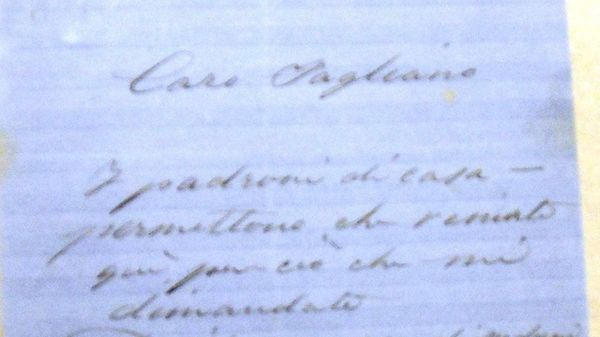 Caro Pagliano
I padroni di casa —
permettono che veniate
quì per ciò che mi
domandate